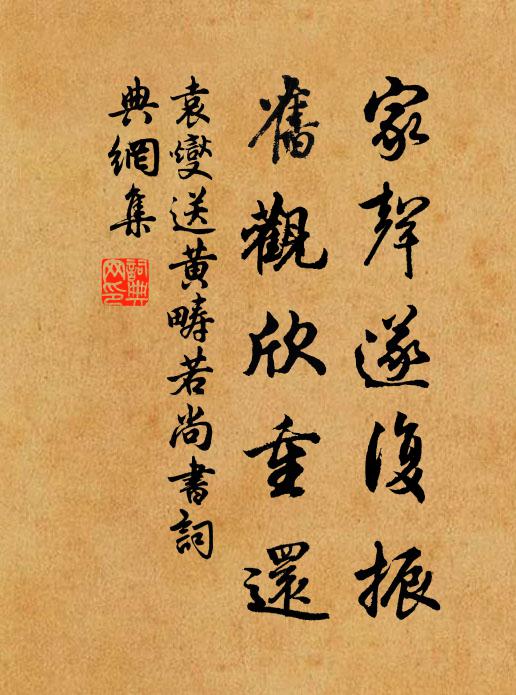 家聲遂復振
舊觀欣重還
袁燮送黃疇若尚書詞
典網集
詞典
网印